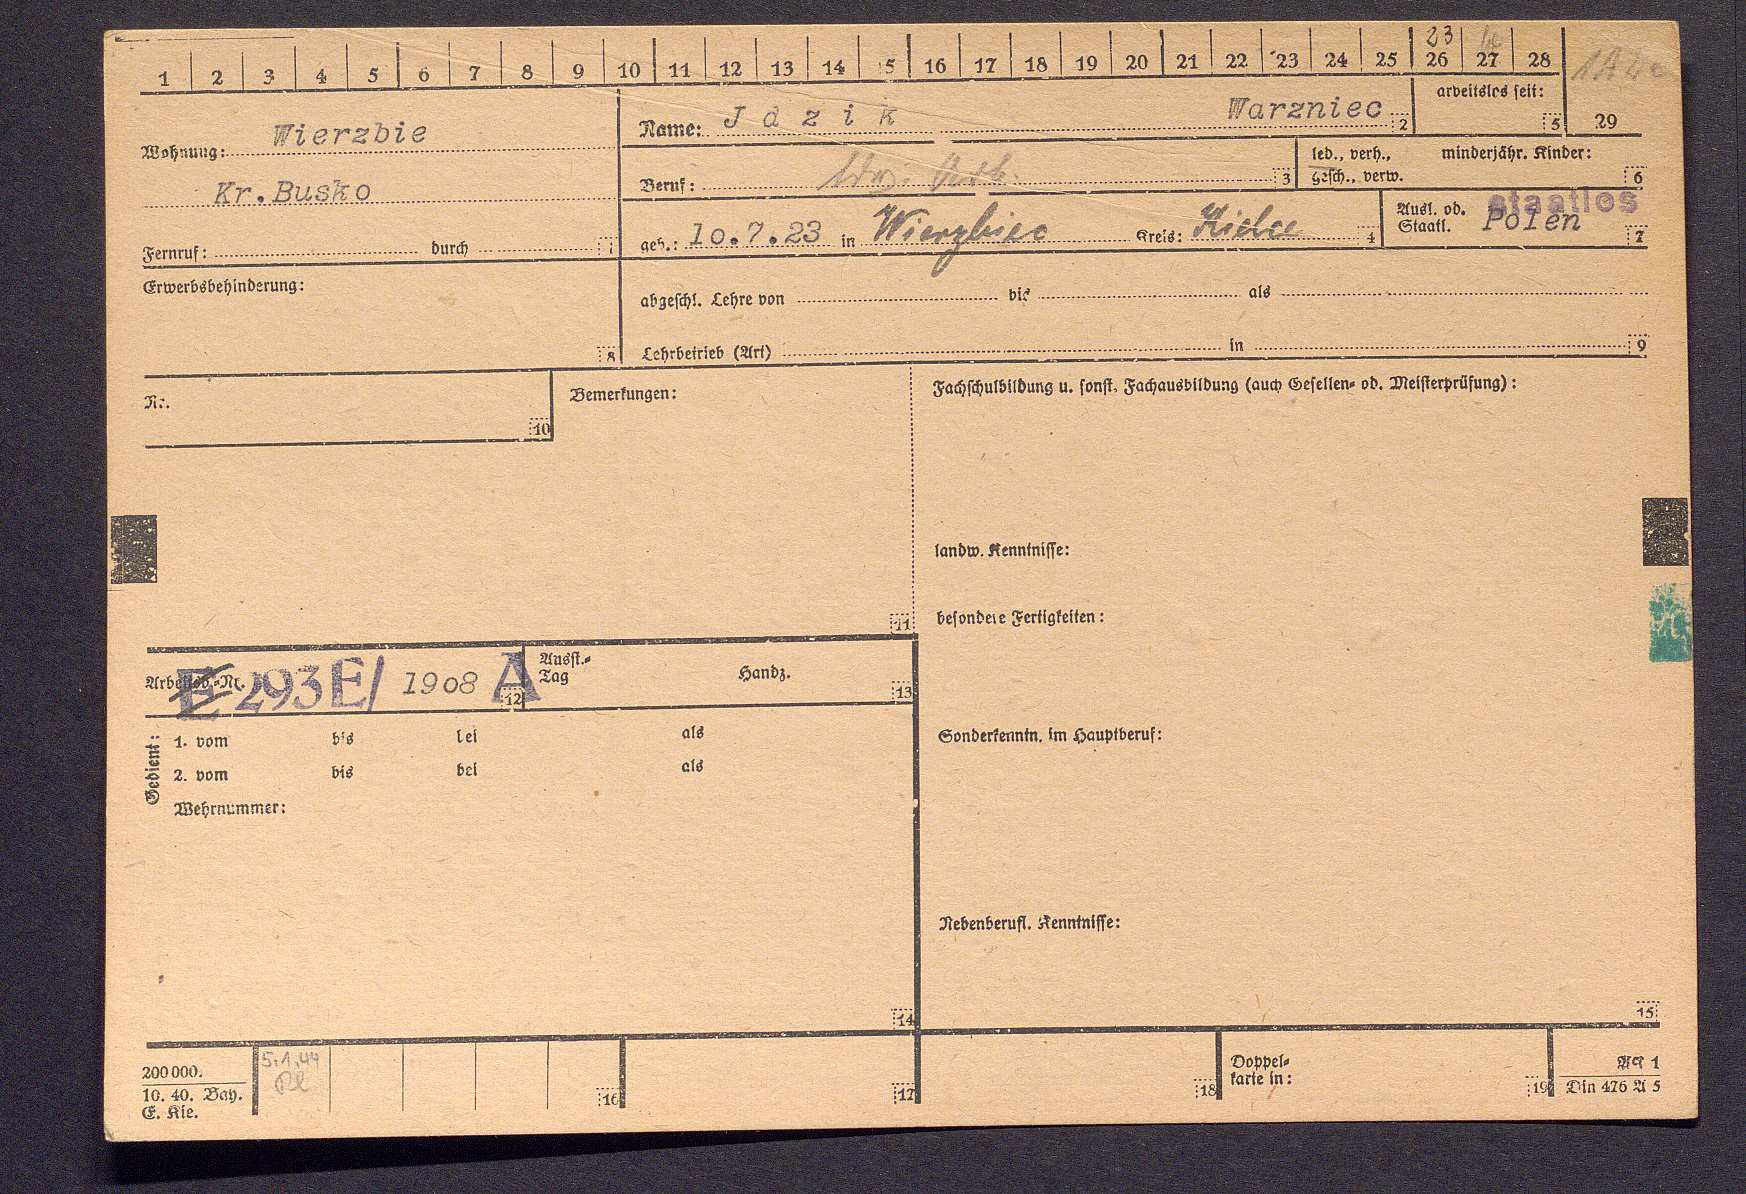 1 2 3 4 5 6 7 8 9 10 11 12 13 14 15 16 17 18 19 20 21 22 23 24 25 26 27 28
23
29
Wohnung: Wierzbie
Kr. Busko
Fernruf: durch 1
Name: J d z i k Warzniec 2
arbeitslos seit: 5
Beruf: 3
led., verh., minderjähr. Kinder:
gesch., verw. 6
geb.: 10.7.23 in Wierzbiec Kreis: Kielce 4
Ausl. od. staatlos
Staatl. Polen 7
Erwerbsbehinderung: 8
abgeschl. Lehre von bis als
Lehrbetrieb (Art) in 9
Nr. 10
Bemerkungen: 11
Fachschulbildung u. sonst. Fachausbildung (auch Gesellen- od. Meisterprüfung):
landw. Kenntnisse:
besondere Fertigkeiten:
Sonderkenntn. im Hauptberuf:
Nebenberufl. Kenntnisse:
15
Arbeitsb.-Nr. E 293E/ 1908 A 12
Ausst.-
Tag Handz. 13
Gedient:
1. vom bis bei als
2. vom bis bei als
Wehrnummer:
14
200 000.
10. 40. Bay.
E. Kie.
5.1.44
16
17
18
Doppel-
karte in: 19
AK 1
Din 476 A 5